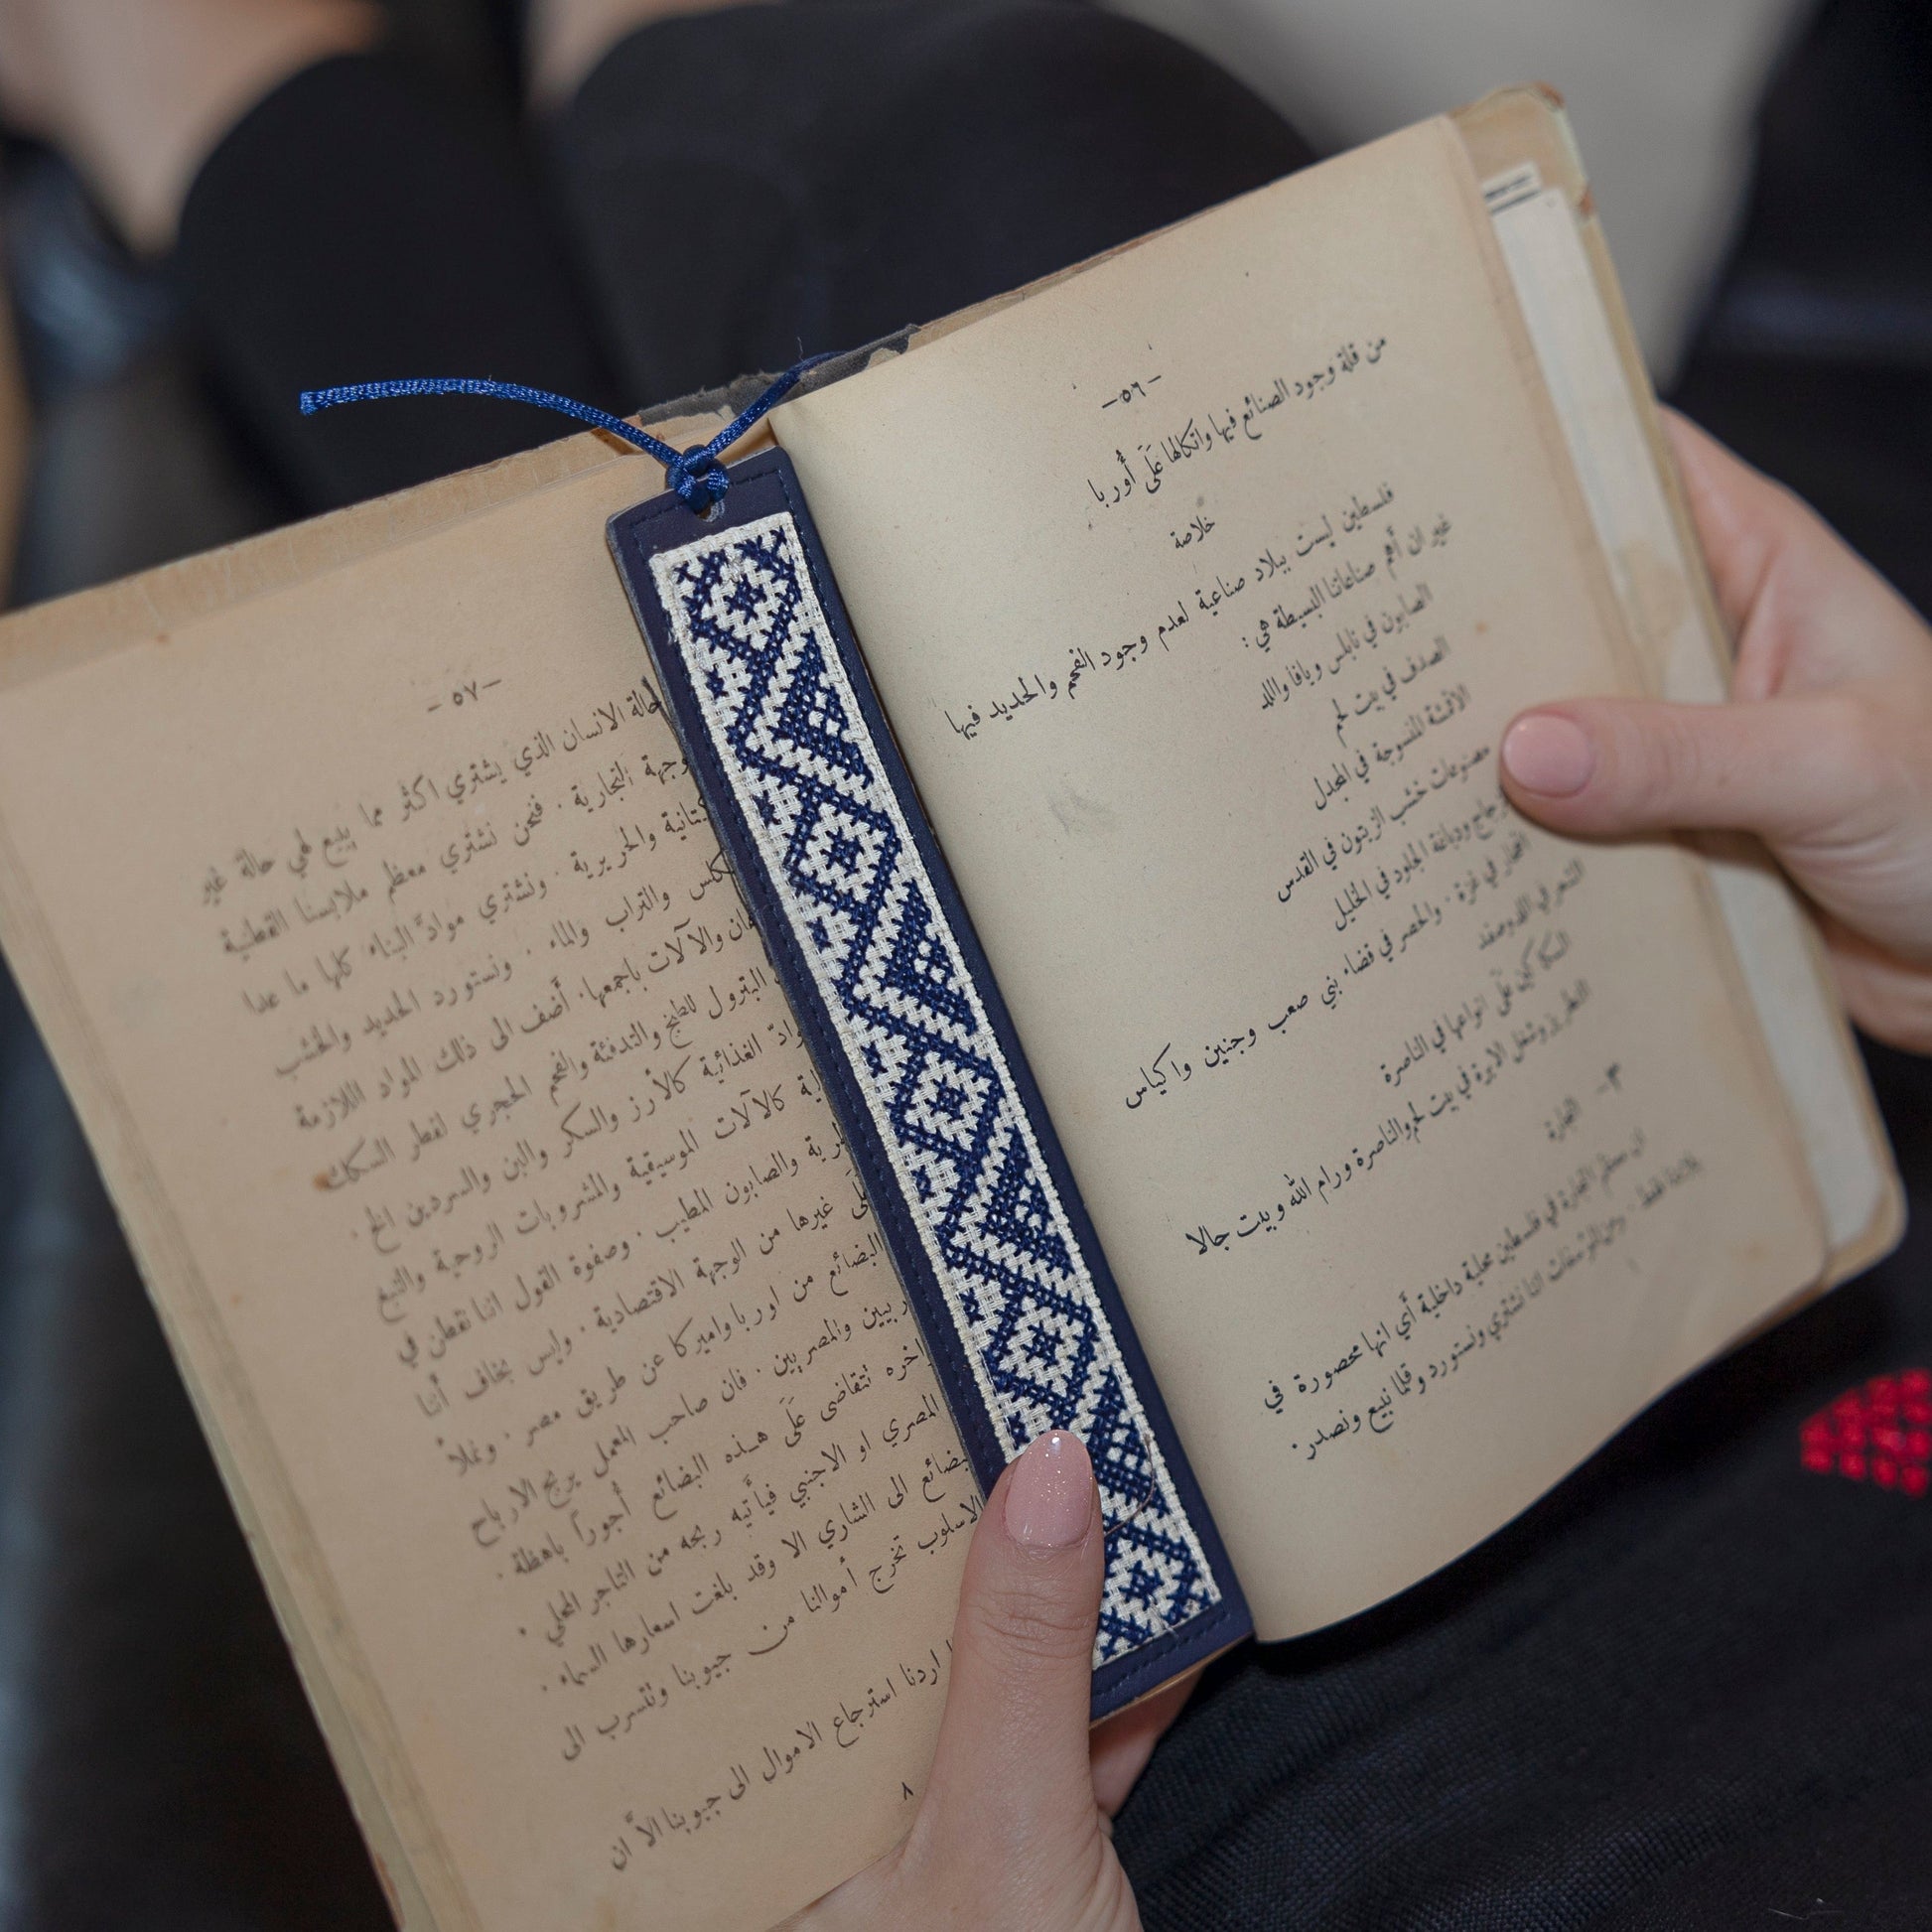 -٥٦-
من قلة وجود الصنائع فيها واتكالها عَلَى أُوربا
خلاصة
فلسطين ليست ببلاد صناعية لعدم وجود الفحم والحديد فيها
غير ان أهم صناعاتنا البسيطة هي :
الصابون في نابلس ويافا واللد
الصدف في بيت لحم
الاقمشة المنسوجة في المجدل
مصنوعات خشب الزيتون في القدس
زجاج ودباغة الجلود في الخليل
الفخار في غزة . والحصر في قضاء بني صعب وجنين واكياس
الشعر في اللد وصفد
السكاكين عَلَى انواعها في الناصرة
التطريز وشغل الابرة في بيت لحم والناصرة ورام الله وبيت جالا
٣- التجارة
ان معظم التجارة في فلسطين محلية داخلية أي انها محصورة في
بلادنا فقط . ومن المؤسفات اننا نشتري ونستورد وقلما نبيع ونصدر .
-٥٧-
حالة الانسان الذي يشتري اكثر مما يبيع لهي حالة غير
وجهة التجارية . فنحن نشتري معظم ملابسنا القطنية
والحريرية . ونشتري موادّ البناء كلها ما عدا
والتراب والماء . ونستورد الحديد والخشب
والآلات باجمعها . أضف الى ذلك المواد اللازمة
البترول للطبخ والتدفئة والفحم الحجري لقطر السكك
الغذائية كالأرز والسكر والبن والسردين الخ .
كالآلات الموسيقية والمشروبات الروحية والتبغ
والصابون المطيب . وصفوة القول اننا نقطن في
غيرها من الوجهة الاقتصادية . وليس بخاف أننا
البضائع من اوربا واميركا عن طريق مصر . وعملاً
والمصريين . فان صاحب المعمل يربح الارباح
تتقاضى عَلَى هذه البضائع أجوراً باهظة .
المصري او الاجنبي فيأتيه ربحه من التاجر المحلي .
الى الشاري الا وقد بلغت اسعارها السماء .
الاسلوب تخرج أموالنا من جيوبنا وتتسرب الى
اردنا استرجاع الاموال الى جيوبنا الاَّ ان
٨